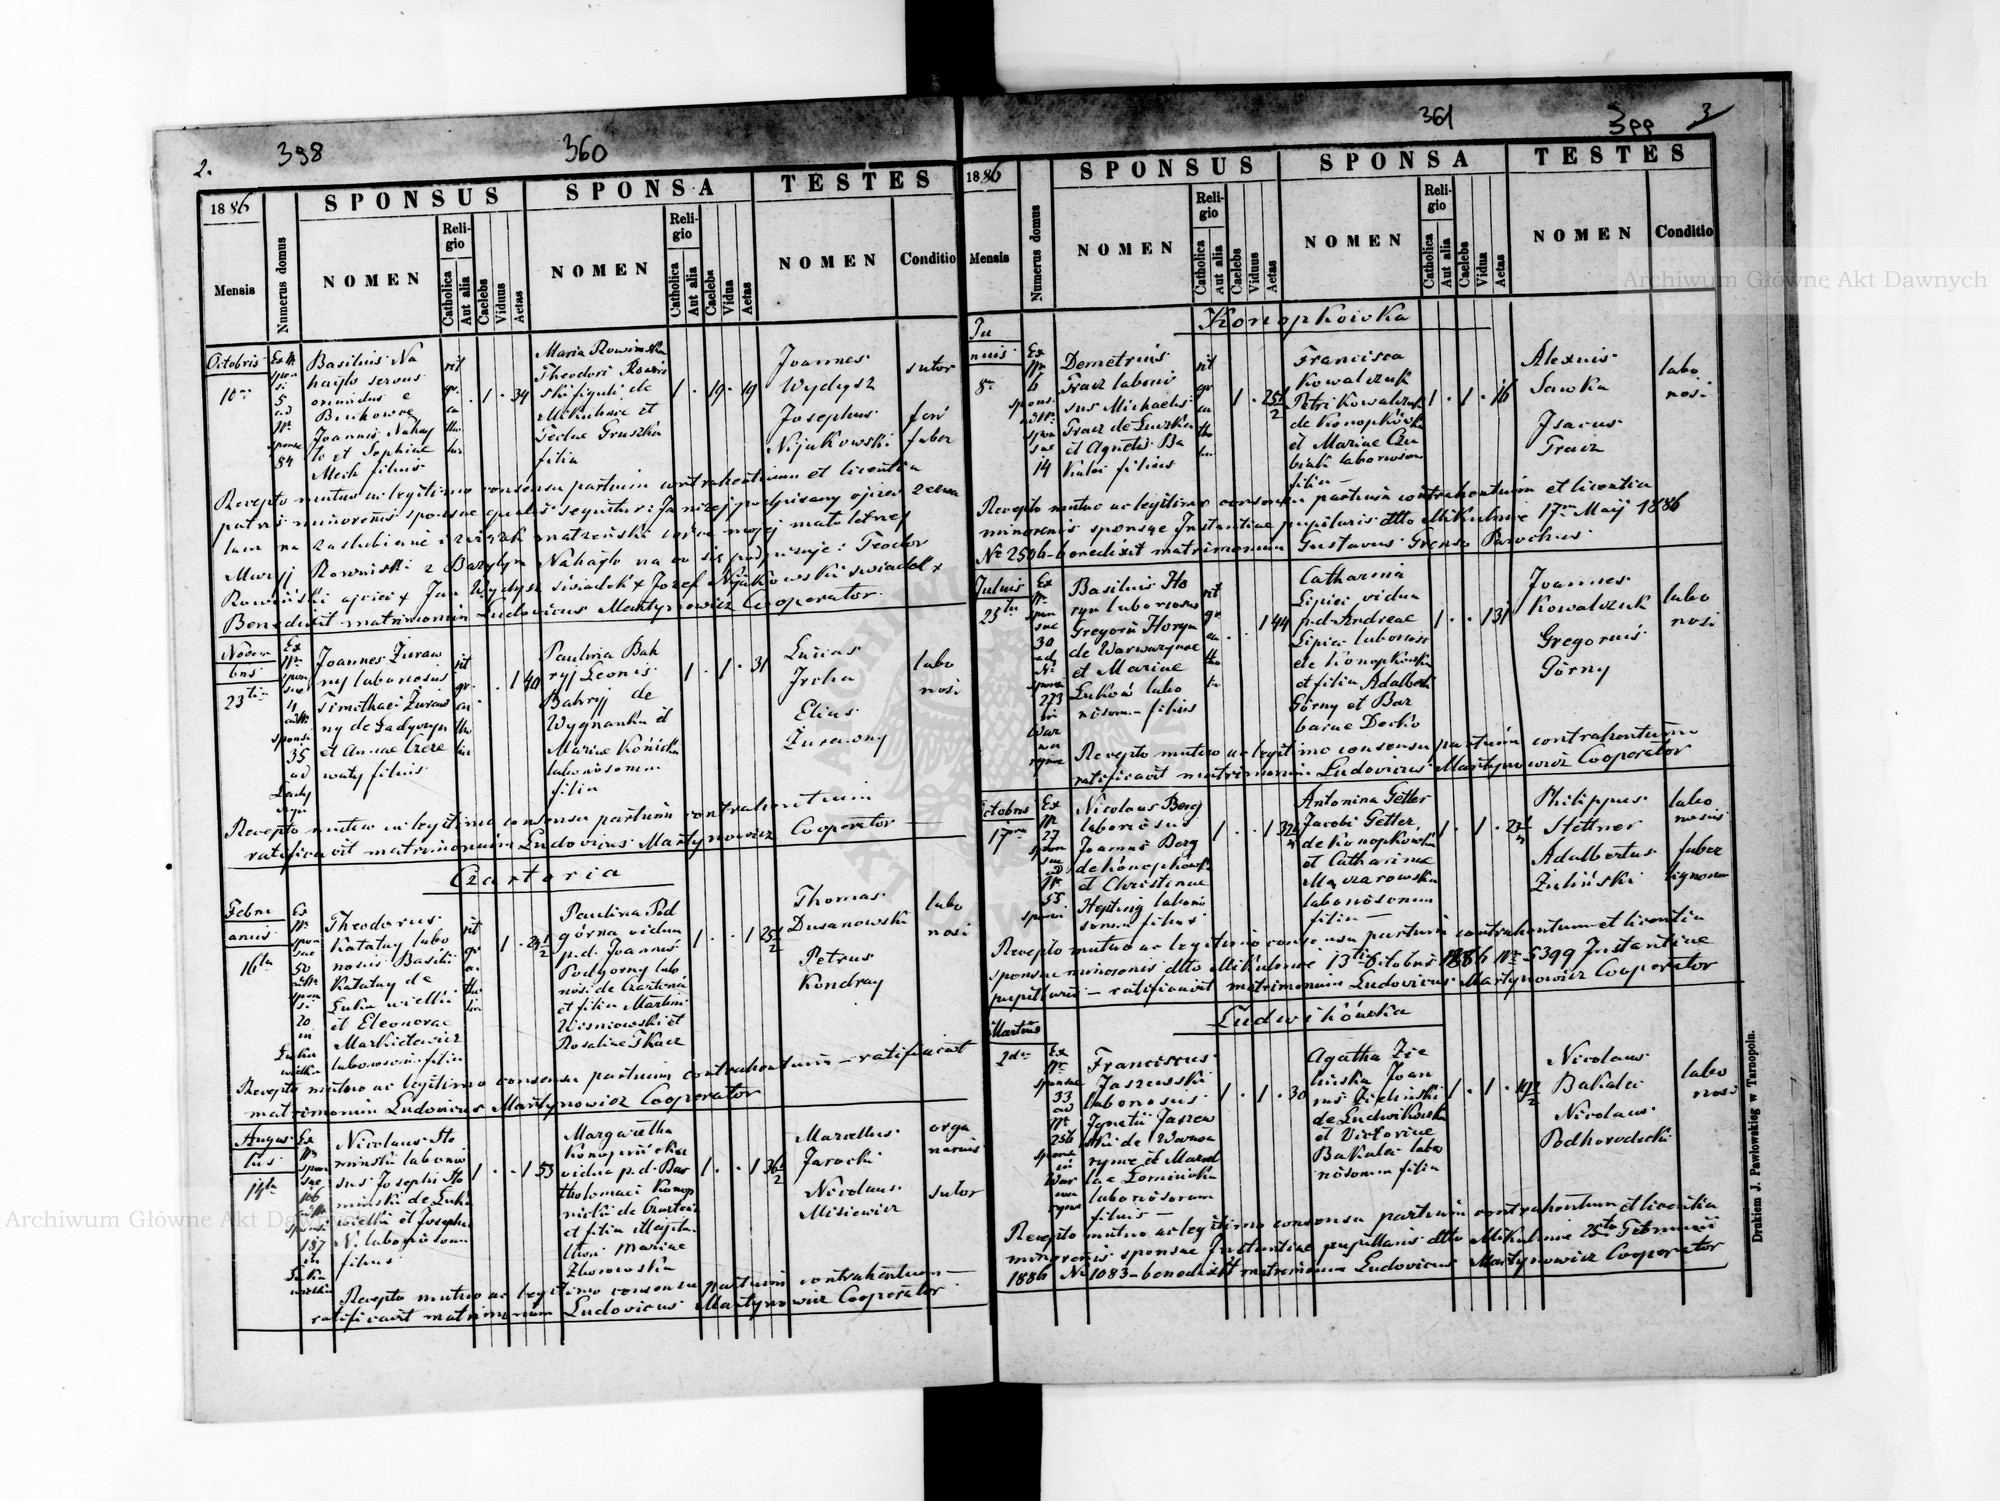 2.
398
360
1886
SPONSUS
SPONSA
TESTES
Mensis
Numerus domus
NOMEN
Religio
Catholica
Aut alia
Caelebs
Viduus
Aetas
NOMEN
Religio
Catholica
Aut alia
Caelebs
Vidua
Aetas
NOMEN
Conditio
Octobris
10
5
ad
Nr
sponsae
84
Basilius Na
hajlo servus
oriundus e
Joannis Nahaj
lo et Sophiae
filius
rit
gr
ca
tho
1 34
Maria Rowińska
Theodori Rowiń
ski figuli de
Mikulińce et
Teclae Gruszka
filia
1 19 19
Joannes
Wydysz
sutor
Josephus
Nijakowski
faber
Recepto mutuo ac legitimo consensu partium contrahentium et licentia
patris minorenis sponsae qualis sequitur: Ja niżej podpisany ojciec zezwa
lam na zaślubienie i związek małżeński córce mojej małoletniej
Maryji Rowiński z Bazylym Nahajło na co się podpisuje: Teodor
Rowiński ojciec x Jan Wydysz świadek x Józef Nijakowski świadek x
Benedixit matrimonium Ludovicus Martynowicz Cooperator
Novem
bris
23
Ex
Nr
spon
sae
4
35
ad
Joannes Żuraw
ny laboriosus
Timothaei Żuraw
ny de Ladyczyn
et Annae Czere
waty filius
rit
gr
ca
tho
1 40
Paulina Bah
ryj Leonis
Bahryj de
Wygnanka et
Mariae Kónicka
laboriosorum
filia
1 1 31
Lucas
Ircha
Elias
Żurawny
labo
riosi
Recepto mutuo ac legitimo consensu partium contrahentium
ratificavit matrimonium Ludovicus Martynowicz Cooperator
Czartoria
Febru
arius
16ta
Ex
Nr
spon
sae
50
20
in
Łuka
wielka
Theodorus
Katatay labo
riosus Basilii
Katatay de
Łuka wielka
et Eleonorae
Markiewicz
laboriosorum filius
rit
gr
ca
tho
1 24 1/2
Paulina Pod
górna vidua
p.d. Joannis
Podgorny labo
riosi de Czartoria
et filia Martini
Wisniowski et
Rosaliae Tkacz
1 1 25 1/2
Thomas
Dusanowski
Petrus
Kondray
labo
riosi
Recepto mutuo ac legitimo consensu partium contrahentium – ratificavit
matrimonium Ludovicus Martynowicz Cooperator
Augus
tus
14ta
Ex
Nr
spon
sae
106
187
in
Łuka
wielka
Nicolaus Sło
minski laborio
sus Josephi Sło
minski de Łuka
wielka et Josepha
N. laboriosorum
filius
1 1 53
Margaretha
Konopnicka
vidua p.d. Bar
tholomaei Konop
nicki de Czartoria
et filia
Mariae
Zborowska
1 1 36 1/2
Marcellus
Jarocki
orga
narius
Nicolaus
Misiewicz
sutor
Recepto mutuo ac legitimo consensu partium contrahentium –
ratificavit matrimonium Ludovicus Martynowicz Cooperator
361
399
3
1886
SPONSUS
SPONSA
TESTES
Mensis
Numerus domus
NOMEN
Religio
Catholica
Aut alia
Caelebs
Viduus
Aetas
NOMEN
Religio
Catholica
Aut alia
Caelebs
Vidua
Aetas
NOMEN
Conditio
Konopkówka
Ju
nius
8
Ex
Nr
6
14
Demetrius
Tracz laborio
sus Michaelis
Tracz de Łuczka
et Agnetis Ba
kalei filius
rit
gr
ca
tho
1 25 1/2
Francisca
Kowalczuk
Petri Kowalczuk
de Konopkówka
et Mariae Czu
biak laborioso
filia
1 1 16
Alexius
Sawka
Isacus
Tracz
labo
riosi
Recepto mutuo ac legitimo consensu partium contrahentium et licentia
minorenis sponsae Instantiae pupilaris dtto Mikulince 17 Maij 1886
No 2506 – benedixit matrimonium Gustavus Parochus
Julius
25
Ex
Nr
spon
sae
30
ad
Nr
273
in
War
wa
ryńce
Basilius Ho
ryn laboriosus
Gregorii Horyn
de Warwaryńce
et Mariae
Łuków labo
riosorum filius
rit
gr
ca
tho
1 44
Catharina
Lipiec vidua
p.d. Andreae
Lipiec laboriosi
de Konopkówka
et filia Adalberti
Górny et Bar
barae Decko
1 1 31
Joannes
Kowalczuk
Gregorius
Górny
labo
riosi
Recepto mutuo ac legitimo consensu partium contrahentium
ratificavit matrimonium Ludovicus Martynowicz Cooperator
Octobris
17
Ex
Nr
27
spon
sae
ad
Nr
55
sponsi
Nicolaus Berg
laboriosus
Joannis Berg
de Konopkówka
et Christinae
Hepting laborio
sorum filius
1 1
Antonina Getter
Jacobi Getter
de Konopkówka
et Catharinae
Mazarowska
laboriosorum
filia –
1 1
Philippus
Stettner
labo
riosus
Adalbertus
Zieliński
faber
lignarius
Recepto mutuo ac legitimo consensu partium contrahentium et licentia
sponsae minorenis dtto Mikulince 13 Octobris 1886 Nr 5399 Instantiae
pupillaris – ratificavit matrimonium Ludovicus Martynowicz Cooperator
Ludwikówka
Martius
2
Ex
Nr
sponsae
33
ad
Nr
256
sponsi
in
War
wa
ryńce
Franciscus
Jaszewski
laboriosus
Ignatii Jaszew
ski de Warwa
ryńce et Marcel
lae Łominska
laboriosorum
filius –
1 1 30
Agatha Zie
linska Joan
nis Zieliński
de Ludwikówka
et Victoriae
Bakalec labo
riosorum filia
1 1 19 1/2
Nicolaus
Bakalec
Nicolaus
Podhorodecki
labo
riosi
Recepto mutuo ac legitimo consensu partium contrahentium et licentia
minorenis sponsae Instantiae pupillaris dtto Mikulince 25 Februarii
1886 Nr 1083 – benedixit matrimonium Ludovicus Martynowicz Cooperator
Drukiem J. Pawłowskieg w Tarnopolu.
Archiwum Główne Akt Dawnych
Archiwum Główne Akt Dawnych